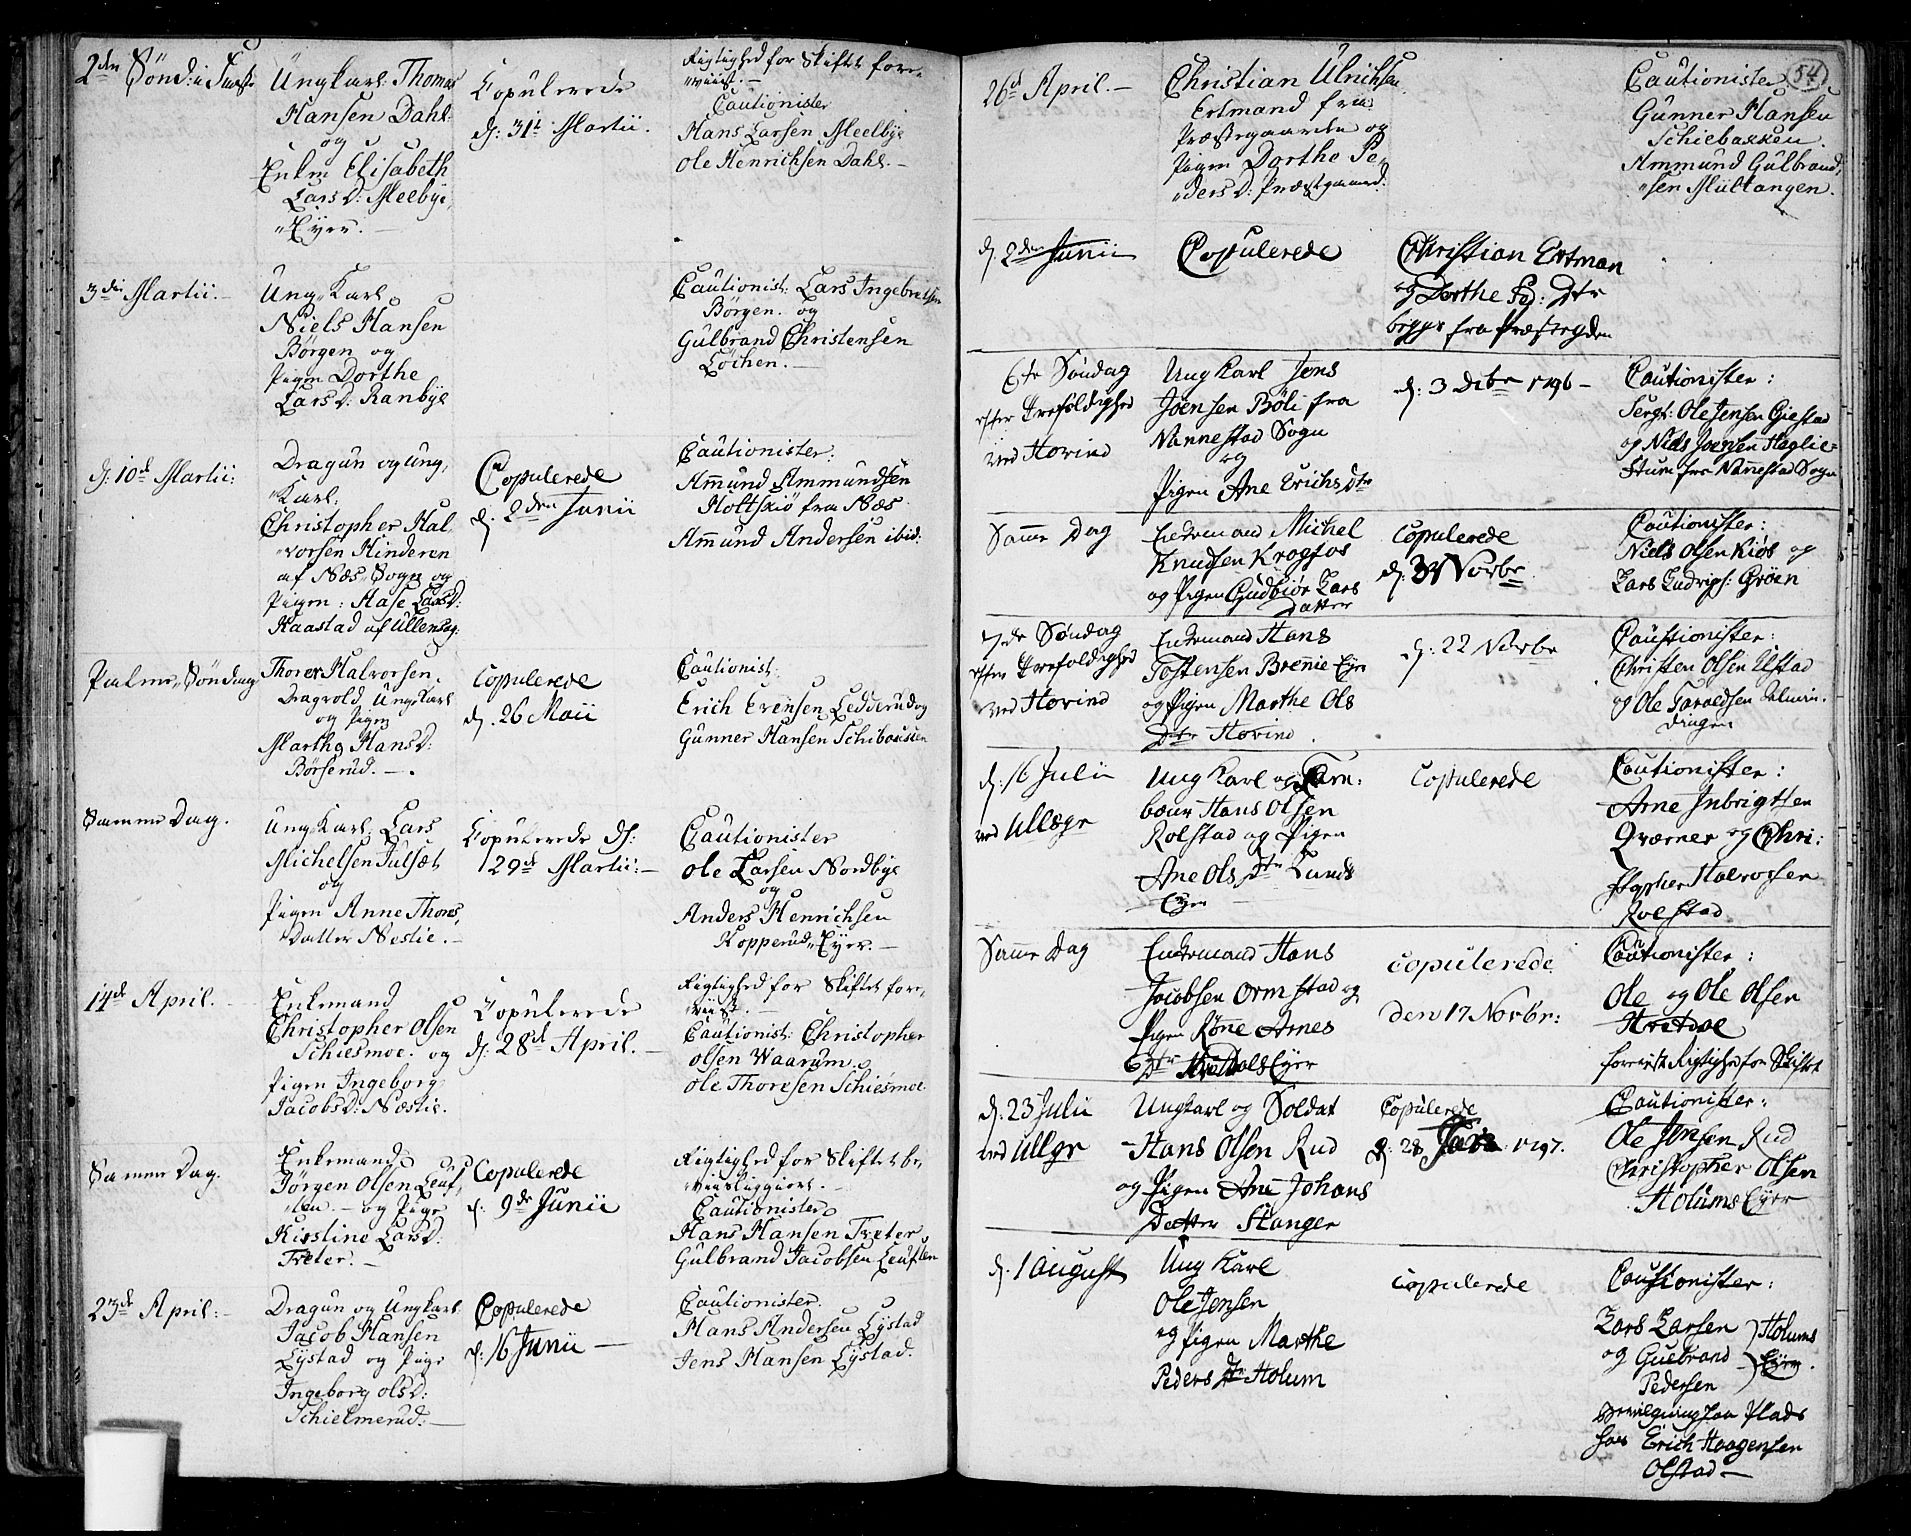 2den Sönd: i Faste
Ungkarl Thomas
Hansen Dahl:
og
Enken Elisabeth
Lars D: Meelbye,
"Eyer. -
Copulerede
d: 31te Martii.
Rigtighed for Skiftet fore-
"viist. -
Cautionister
Hans Larsen Meelbye
Ole Henrichsen Dahl. -
3die Martii. -
Ung-Karl
Niels Hansen
Börgen og
Pigen Dorthe
Lars D: Ranbye
Cautionist: Lars Ingebretsen
Börgen. og
Gulbrand Christensen
Löchen. -
d: 10de Martii:
Dragun og Ung,
"Karl:
Christopher Hal-
"vorsen Hinderen
af Næs Sogn og
Pigen: Aase Lars D:
Kaastad af Ullensag:
Copulerede
d. 2den Junii
Cautionister:
Amund Ammundsen
Holtskiö fra Næs
Amund Andersen ibid:
Palme-Söndag
Thorer Halvorsen,
Dragvold Ungkarl
og Pigen
Marthe Hans D:
Börserud. -
Copulerede
d. 26 Maii
Cautionist:
Erich Evensen Ledderud og
Gunner Hansen Schibakken
Samme Dag.
Ung Karl Lars
Michelsen Julsæt
og
Pigen Anne Thores
Datter Nestie. -
Copulerede d:
29de Martii: -
Cautionister
Ole Larsen Nordbye
og
Anders Henrichsen
Kopperud, Eyer. -
14de April. -
Enkemand
Christopher Olsen
Schiesmoe. og
Pigen Ingeborg
Jacobs D: Næstie.
Copulerede
d: 28de April. -
Rigtighed for Skiftet fore-
"viist. -
Cautionist: Christopher
Olsen Waarum. og
Ole Thoresen Schiesmoe.
Samme Dag.
Enkemand
Jörgen Olsen Leuf-
"len. - og Pige
Kirstine Lars D.
Treter. -
Copulerede
d: 9de Junii
Rigtighed for Skiftet be-
Cautionister
Hans Hansen Treter
Gulbrand Jacobsen Leuflen
23de April: -
Dragun og Ungkarl
Jacob Hansen
Lystad og Pige
Ingeborg Ols D:
Schielmerud: -
Copulerede
d: 16 Junii -
Cautionister.
Hans Andersen Lystad
Jens Hansen Lystad.
54
26de April. -
Christian Ulrichsen
Ertmand fra
Præstegaarden og
Pigen Dorthe Pe-
"ders D: Præstgaard.
Cautionister
Gunner Hansen
Schiebakken.
Ammund Gulbrand-
"sen Multangen.
d. 2den Junii
Copulerede
Christian Ertman
og Dorthe Ped: Dtr
begge fra Præstegden
6te Söndag
efter Trefoldighed
ved Hovind
Ung Karl Jens
Joensen Böli fra
Nannestad Sogn
og
Pigen Ane Erichs Dtr
d: 3 Dcbr 1796 -
Cautionister:
Sergt: Ole Jensen Giestad
og Niels Joensen Haglie-
Stuen fra Nannestad Sogn
Samme Dag
Enkemand Michel
Knudsen Krogfos
og Pigen Gudbiör Lars
Datter
Copulerede
d: 3 Novbr
Cautionister:
Niels Olsen Kiös og
Lars Ludvigs: Gröen
7de Söndag
efter Trefoldighed
ved Hovind
Enkemand Hans
Tostensen Brennie Eye
og Pigen Marthe Ols
Dtr Hovind.
d: 22 Novbr
Cautionister:
Christen Olsen Elstad
og Ole Taraldsen Almin-
dingen
d: 16 Julii
ved Ullegr
Ung Karl og Tam:
bour Hans Olsen
Rolstad og Pigen
Ane Ols Dtr Lunds
Eyer
Copulerede
Cautionister:
Arne Inbrigtsen
Qværner og Chri:
stopher Halvorsen
Rolstad
Samme Dag
Enkemand Hans
Jacobsen Ormstad og
Pigen Rönne Arnes
Dtr Eyer
Copulerede
den 17 Novbr:
Cautionister:
Ole og Ole Olsen
foreviist Rigtighed for Skiftet
d. 23 Julii
ved Ullgr
Ungkarl og Soldat
Hans Olsen Rud
og Pigen Ane Johans
Datter Stanger
Copulerede
d: 28 1797.
Cautionister:
Ole Jensen Rud
Christopher Olsen
Holums Eyer
d. 1 August
Ung Karl
Ole Jensen
og Pigen Marthe
Peders Dtr Holum
Copulerede
Cautionister:
Lars Larsen } Holums
og Gulbrand } Eyer.
Pedersen
Erich Haagensen
Olstad -